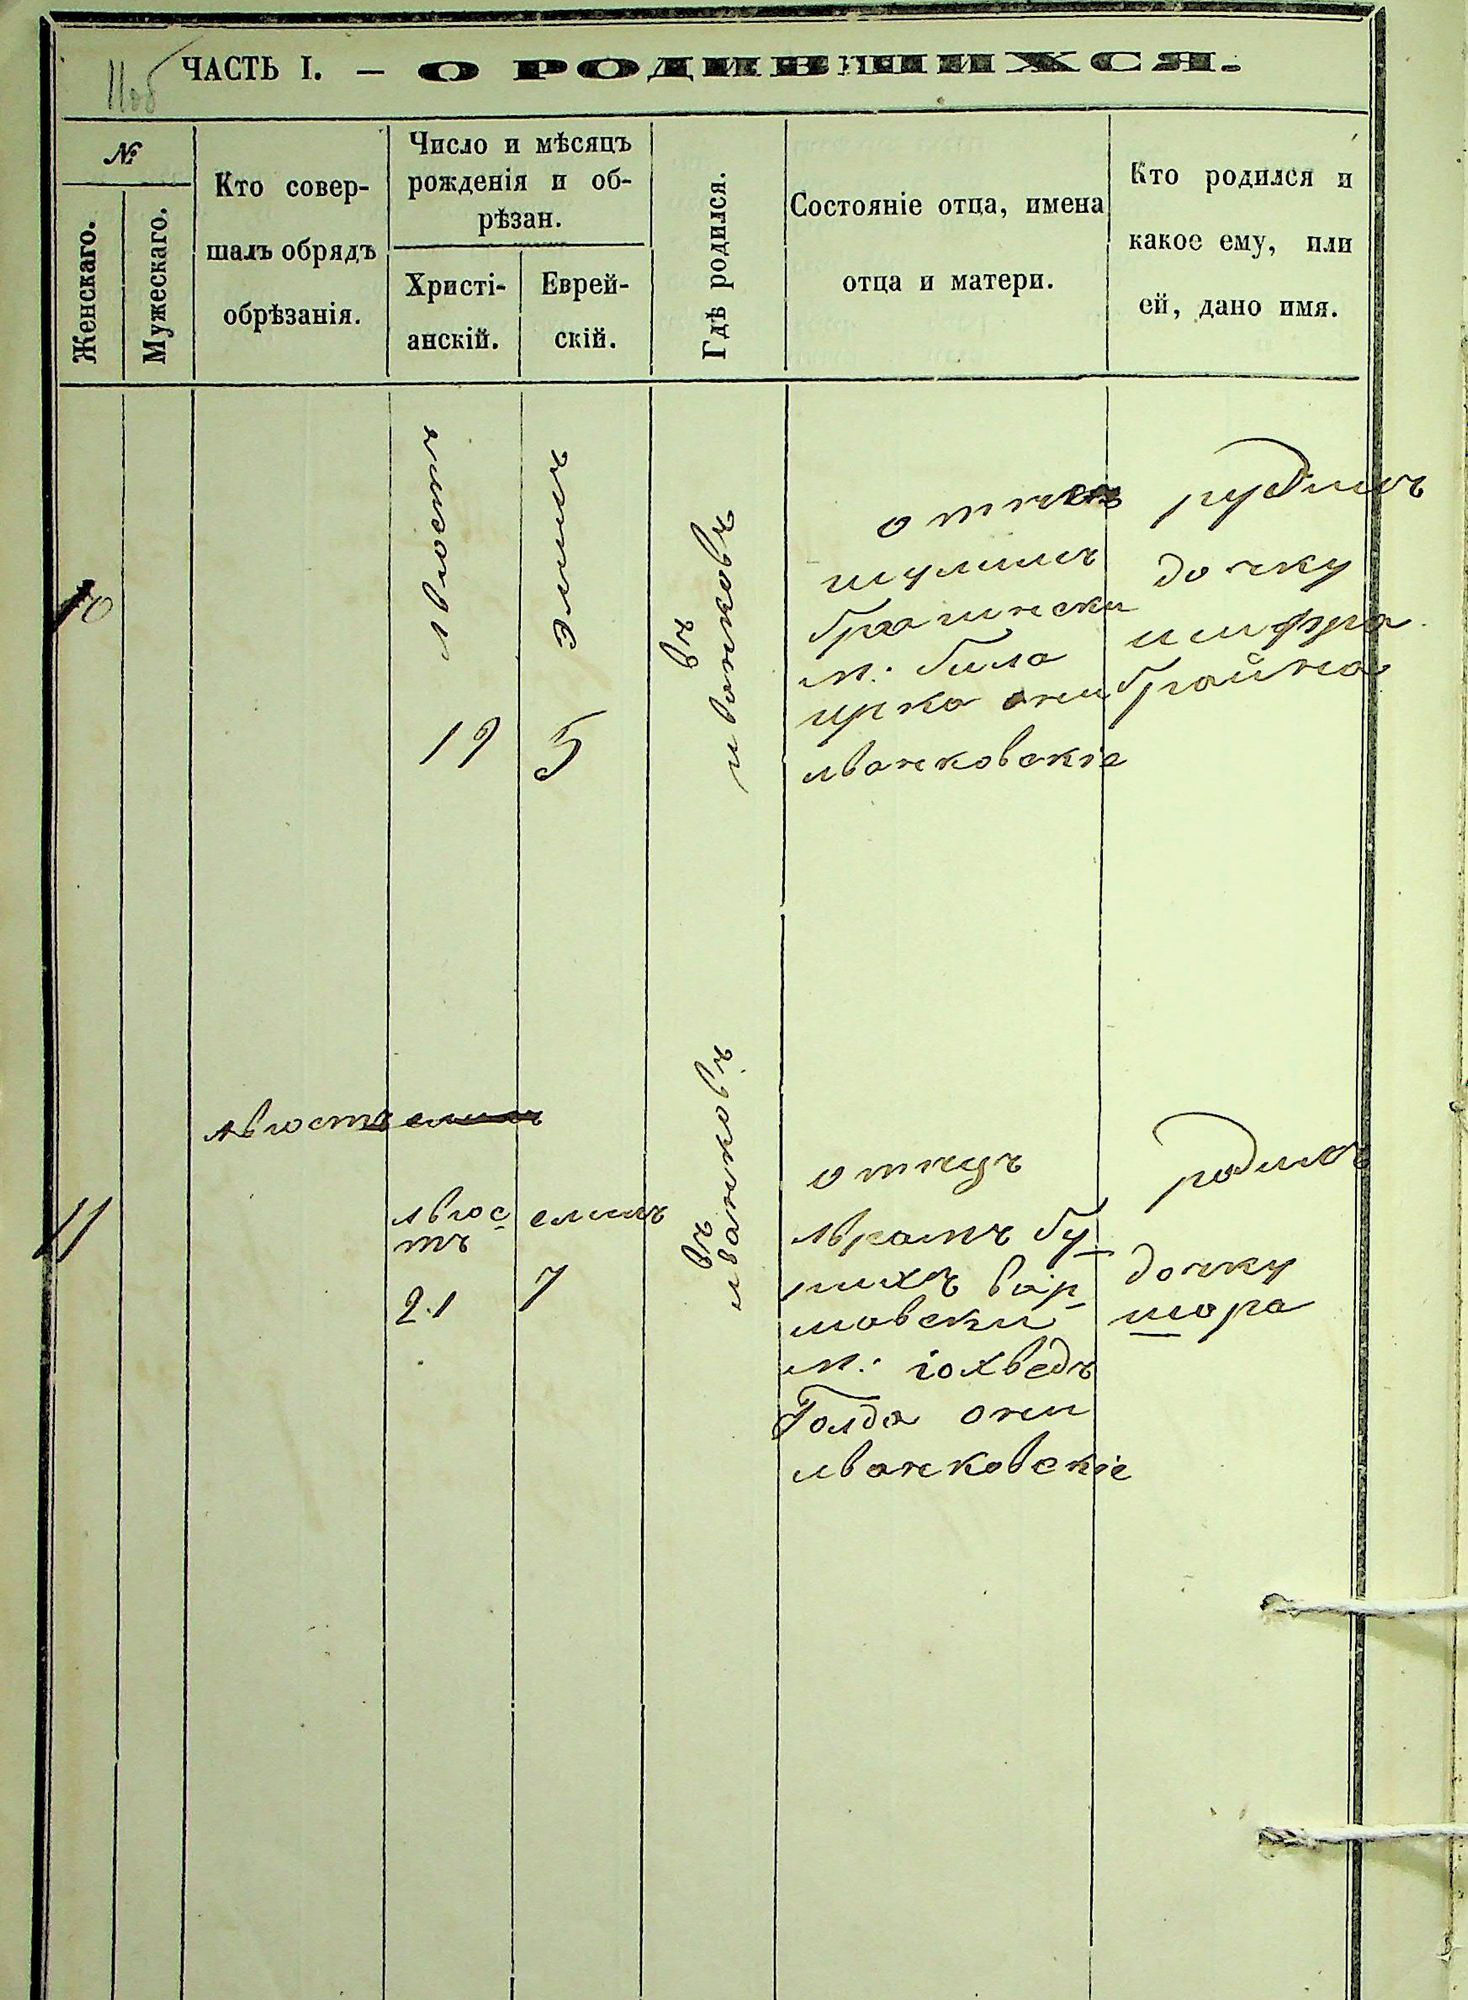 11об
ЧАСТЬ I. — О РОДИВШИХСЯ.
№
Женскаго.
Мужескаго.
Кто совер-
шалъ обрядъ
обрѣзанія.
Число и мѣсяцъ
рожденія и об-
рѣзан.
Христі-
анскій.
Еврей-
скій.
Гдѣ родился.
Состояніе отца, имена
отца и матери.
Кто родился и
какое ему, или
ей, дано имя.
10
Авюстъ
19
Элилъ
5
въ
иванковъ
отецъ
шулимъ
м: била
ирка они
иванковскіе
дочку
шифра
брайна
Авюстъ елилъ
11
Авюс
тъ
21
елилъ
7
въ
иванковъ
отецъ
Аврамъ бу
рихъ вар
шавски
м: іохведъ
Голда они
иванковскіе
родилъ
дочку
шора